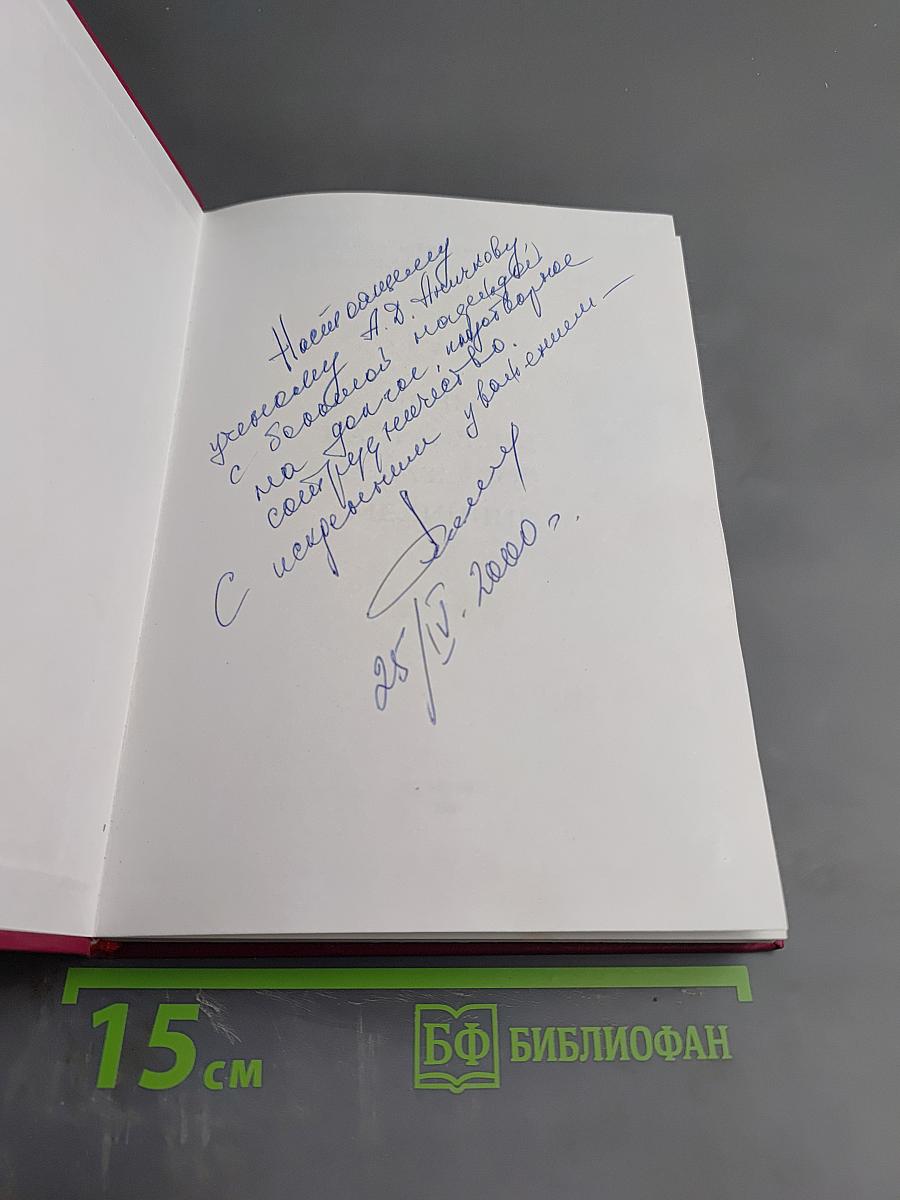 Настоящему
ученому А.Д. Аничкову
с большой надеждой
на долгое, плодотворное
сотрудничество.
С искренним уважением —
25/IV. 2000 г.
15 см
БФ БИБЛИОФАН